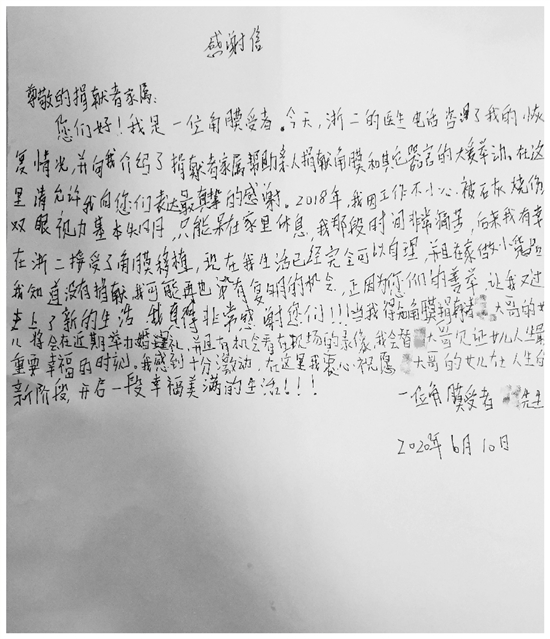 感谢信
尊敬的捐献者家属:
您们好!我是一位角膜受者。今天,浙二的医生电话咨询了我的恢
复情况,并向我介绍了捐献者家属帮助亲人捐献角膜和其它器官的大爱举动。在这
里请允许我向您们表达最真挚的感谢。2018年,我因工作不小心被石灰烧伤
双眼视力基本失明,只能呆在家里休息。我那段时间非常痛苦,后来我有幸
在浙二接受了角膜移植,现在我生活已经完全可以自理,并且在家做小
我知道没有捐献我可能再也没有复明的机会,正因为您们的善举,让我又过
上了新的生活 我真得非常感谢您们!!!当我得知角膜捐献者 大哥的女
儿将会在近期举办婚礼,并且有机会看在现场的录像,我会替 大哥见证女儿人生最
重要幸福的时刻。我感到十分激动,在这里我衷心祝愿 大哥的女儿在人生的
新阶段,开启一段幸福美满的生活!!!
一位角膜受者 先生
2020年6月10日